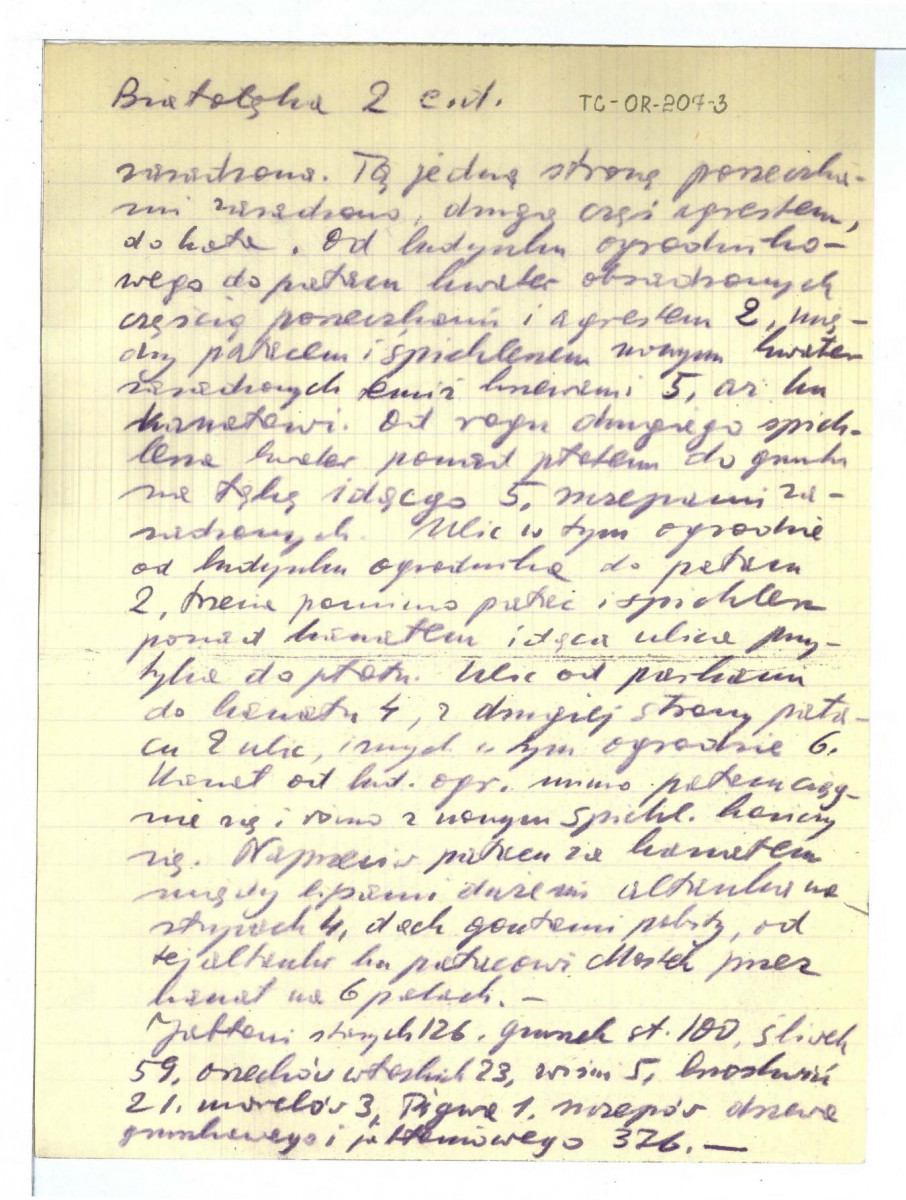 Białołęka 2 c.d. TC-OR-207-3
zasadzona. Tą jedną stroną porzeczka-
mi zasadzono, drugą częś agrestem,
do koła. Od budynku ogrodniko-
wego do pałacu kwater obsadzonych
częścią porzeczkami i agrestem 2, mię-
dzy pałacem i spichlerzem nowym kwater
zasadzonych krzewami 5, aż ku
kanałowi. Od rogu drugiego spich-
lerza kwater ponad płotem do gruntu
na łąkę idącego 5, szczepami za-
sadzonych. Ulic w tym ogrodzie
od budynku ogrodnika do pałacu
2, trzecia pomimo pałac i spichlerz
ponad kanałem idąca ulica przy-
tyka do płotu. Ulic od parkanu
do kanału 4, z drugiej strony pała-
cu 2 ulic, innych w tym ogrodzie 6.
Kanał od bud. ogr. mimo pałacu ciąg-
nie się i równo z nowym spichl. kończy
się. Naprzeciw pałacu za kanałem
między lipami dużemi altanka na
słupach 4, dach gontami pobity, od
tej altanki ku pałacowi Mostek przez
kanał na 6 palach. —
Jabłoni starych 126. gruszek st. 100, śliwek
59, orzechów włoskich 23, wiśni 5, brzoskwiń
21. morelów 3, Pigwa 1. szczepów drzewa
gruszkowego i jabłoniowego 326. —